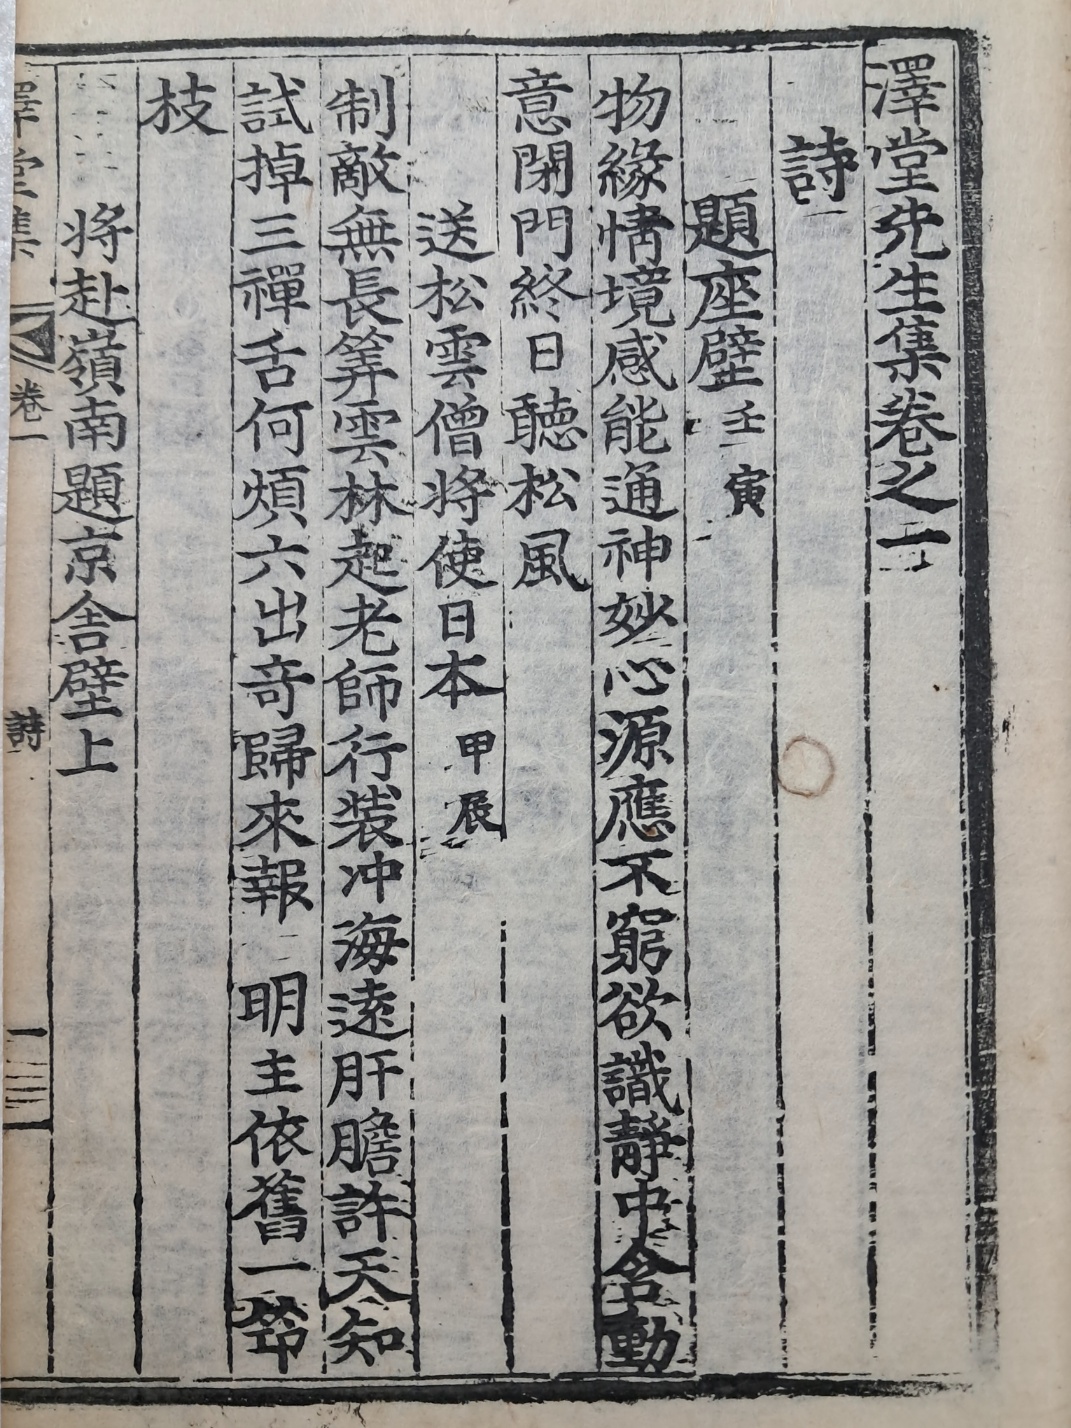 澤堂先生集卷之一
詩
題座壁 壬寅
物緣情境感能通神妙心源應不窮欲識靜中含動
意閉門終日聽松風
送松雲僧將使日本 甲辰
制敵無長筭雲林起老師行裝冲海遠肝膽許天知
試掉三禪舌何煩六出奇歸來報 明主依舊一笻
枝
將赴嶺南題京舍壁上
澤堂集 卷一 詩 一